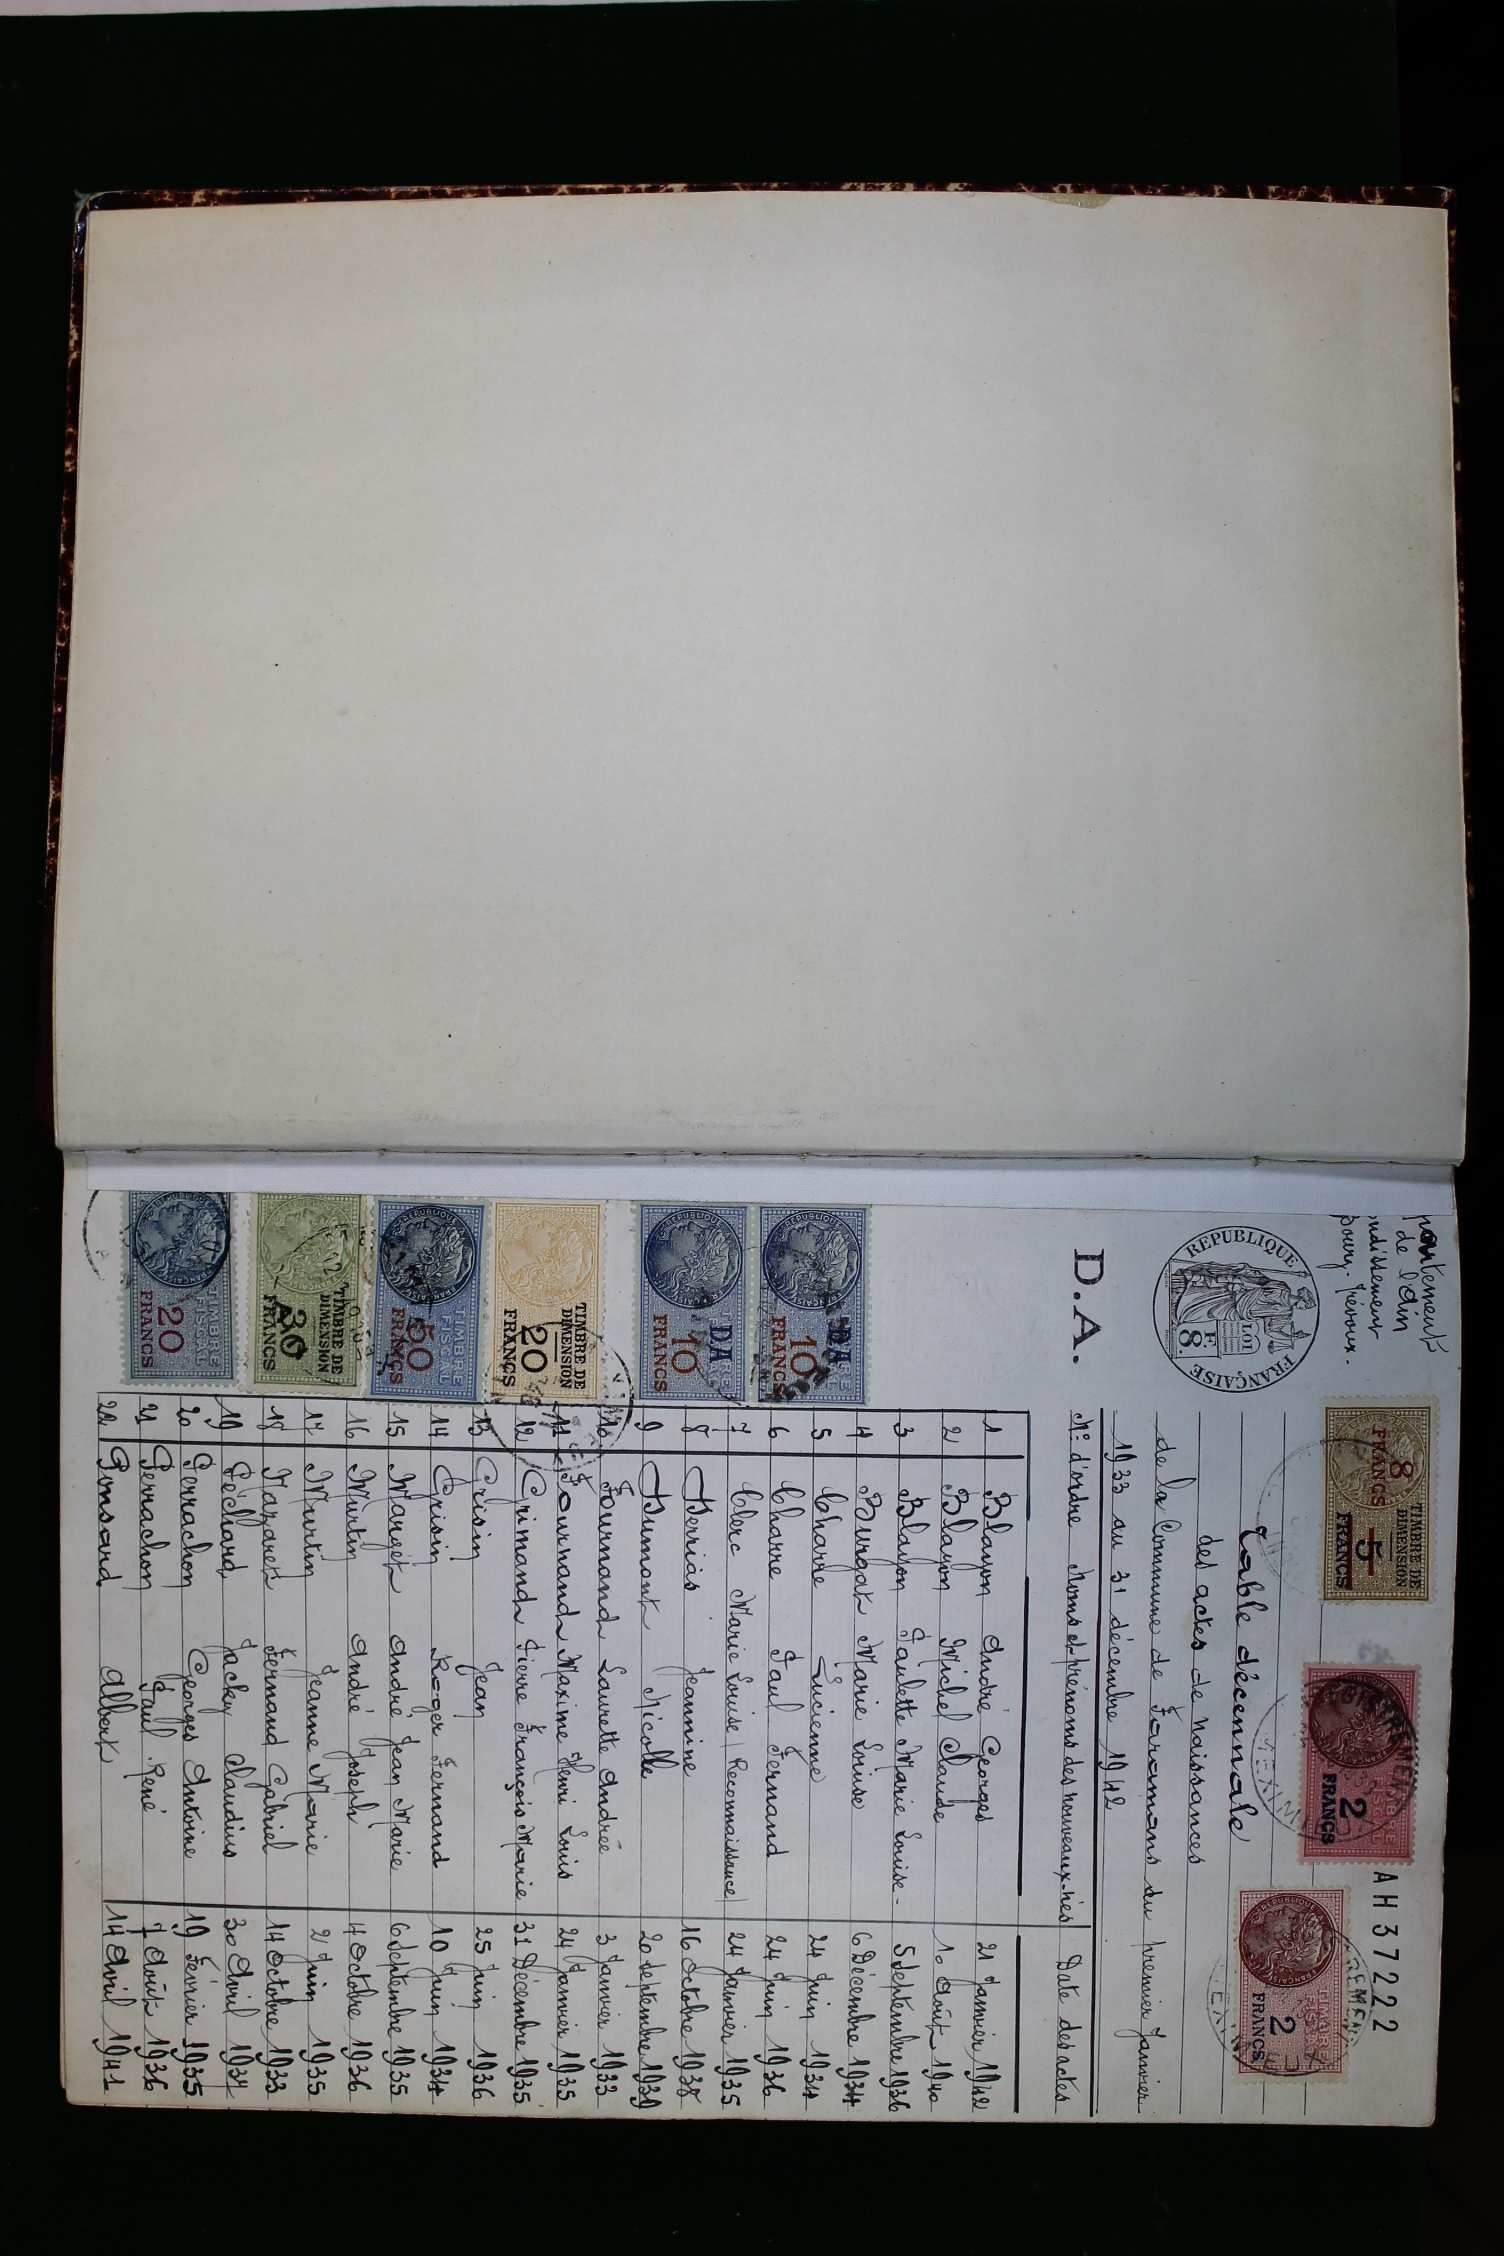 partement
de l'Ain
ondissement
bourg-Trévoux.
RÉPUBLIQUE FRANÇAISE
LOI
8 F.
TIMBRE DE DIMENSION
8 FRANCS
5 FRANCS
TIMBRE FISCAL
2 FRANCS
AH 37222
TIMBRE FISCAL
2 FRANCS
D.A.
Table décennale
des actes de Naissances
de la Commune de Faramans du premier Janvier
1933 au 31 décembre 1942
N° d'ordre Noms et prénoms des nouveaux-nés Date des actes
1 Blayon André Georges 21 Janvier 1942
2 Blayon Michel Claude 10 Août 1940
3 Blayon Paulette Marie Louise- 5 Septembre 1936
4 Burgat Marie Louise 6 Décembre 1934
5 Charre Lucienne 24 Juin 1934
6 Charre Paul Fernand 24 Juin 1936
7 Clerc Marie Louise (Reconnaissance) 24 Janvier 1935
8 Derrias Jeannine 16 Octobre 1938
9 Dumont Nicolle 20 Septembre 1939
10 Fournand Laurette Andrée 3 Janvier 1933
11 Fournand Maxime Henri Louis 24 Janvier 1935
12 Grimand Pierre François Marie 31 Décembre 1935
13 Grisin Jean 25 Juin 1936
14 Grisin Roger Fernand 10 Juin 1934
15 Marget André Jean Marie 6 Septembre 1935
16 Murtin André Joseph 4 Octobre 1936
17 Murtin Jeanne Marie 2 Juin 1935
18 Nazaret Fernand Gabriel 14 Octobre 1933
19 Péchard Jacky Claudius 30 Avril 1937
20 Perrachon Georges Antoine 19 Février 1935
21 Perrachon Paul René 7 Août 1936
22 Ponsard Albert 14 Avril 1941
D.A
10 FRANCS
D.A
10 FRANCS
TIMBRE DE DIMENSION
20 FRANCS
TIMBRE FISCAL
50 FRANCS
TIMBRE DE DIMENSION
30 FRANCS
TIMBRE FISCAL
20 FRANCS